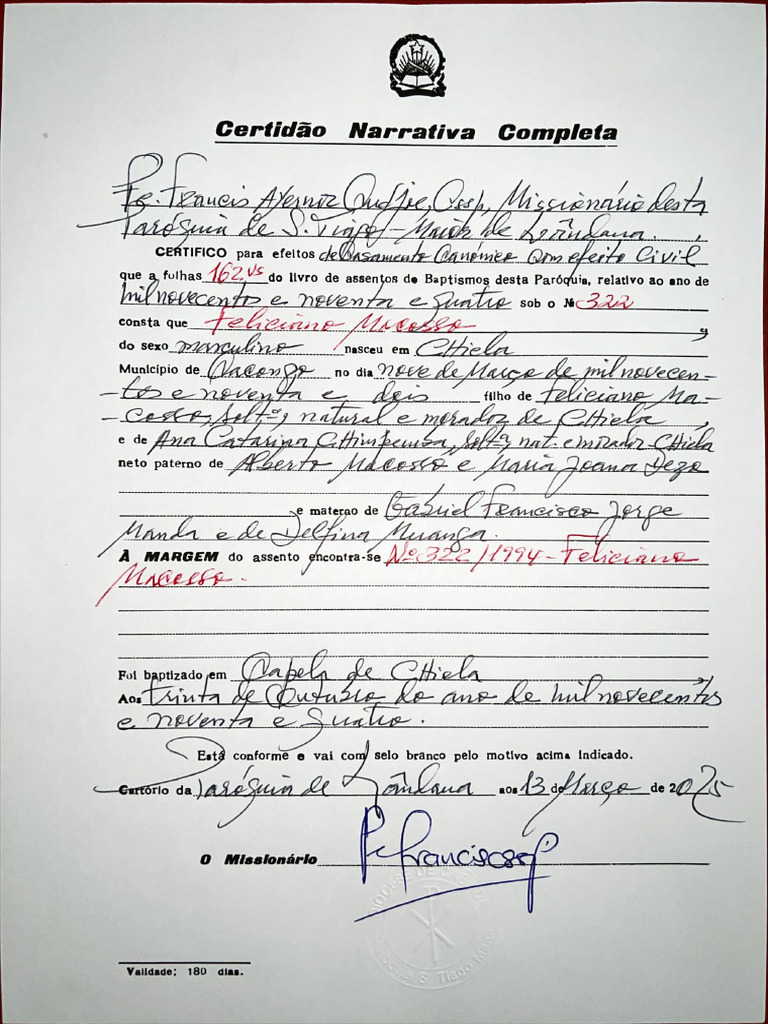 Certidão Narrativa Completa
Pe. Francis Ayernor Cssp, Missionário desta
Paróquia de S. Tiago-Maior de Lândana.
CERTIFICO para efeitos de Casamento Canónico Com efeito Civil
que a folhas 162 vs do livro de assentos de Baptismos desta Paróquia, relativo ao ano de
mil novecentos e noventa e quatro sob o Nº 322
consta que Feliciano Macosso,
do sexo masculino nasceu em CHiela
Município de Cacongo no dia nove de Março de mil novecen-
-tos e noventa e dois filho de Feliciano Ma-
-cosso, Solt.º, natural e morador de CHiela,
e de Ana Catarina CHimpemba, Solt.ª nat. e morador CHiela
neto paterno de Alberto Macosso e Maria Joana Dezo
e materno de Gabriel Francisco Jorge
Manda e de Delfina Muanga.
À MARGEM do assento encontra-se Nº 322/1994-Feliciano
Macosso.
Foi baptizado em Capela de CHiela
Aos trinta de Outubro do ano de mil novecentos
e noventa e quatro.
Está conforme e vai com selo branco pelo motivo acima indicado.
Cartório da Paróquia de Lândana aos 13 de Março de 2025
O Missionário Pe Franciscssp
DIOCESE DE CABINDA
S. Tiago Maior
Validade: 180 dias.